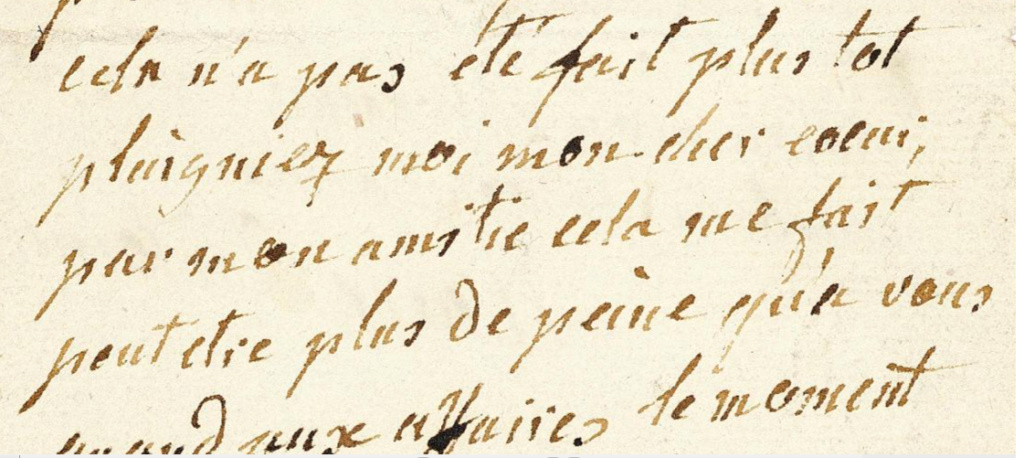 cela n'a pas eté fait plus tot
plaigniez moi mon cher coeur,
par mon amitie cela me fait
peut etre plus de peine qu'a vous
quand aux affaires le moment